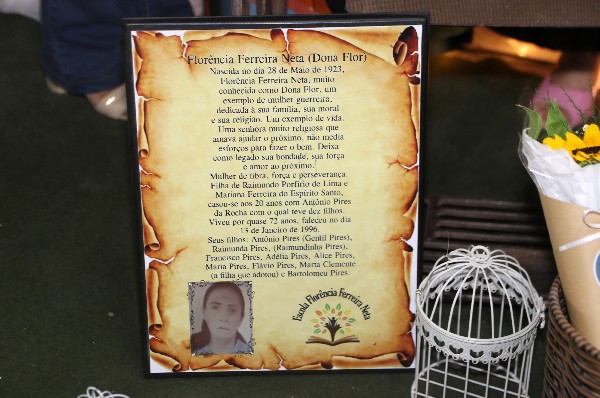 Florência Ferreira Neta (Dona Flor)
Nascida no dia 28 de Maio de 1923,
Florência Ferreira Neta, muito
conhecida como Dona Flor, um
exemplo de mulher guerreira,
dedicada à sua família, sua moral
e sua religião. Um exemplo de vida.
Uma senhora muito religiosa que
amava ajudar o próximo, não media
esforços para fazer o bem. Deixa
como legado sua bondade, sua força
e amor ao próximo.
Mulher de fibra, força e perseverança.
Filha de Raimundo Porfírio de Lima e
Mariana Ferreira do Espírito Santo,
casou-se aos 20 anos com Antônio Pires
da Rocha com o qual teve dez filhos.
Viveu por quase 72 anos, faleceu no dia
13 de Janeiro de 1996.
Seus filhos: Antônio Pires (Gentil Pires),
Raimunda Pires, (Raimundinha Pires),
Francisco Pires, Adélia Pires, Alice Pires,
Maria Pires, Flávio Pires, Maria Clemente
(a filha que adotou) e Bartolomeu Pires.
Escola Florência Ferreira Neta